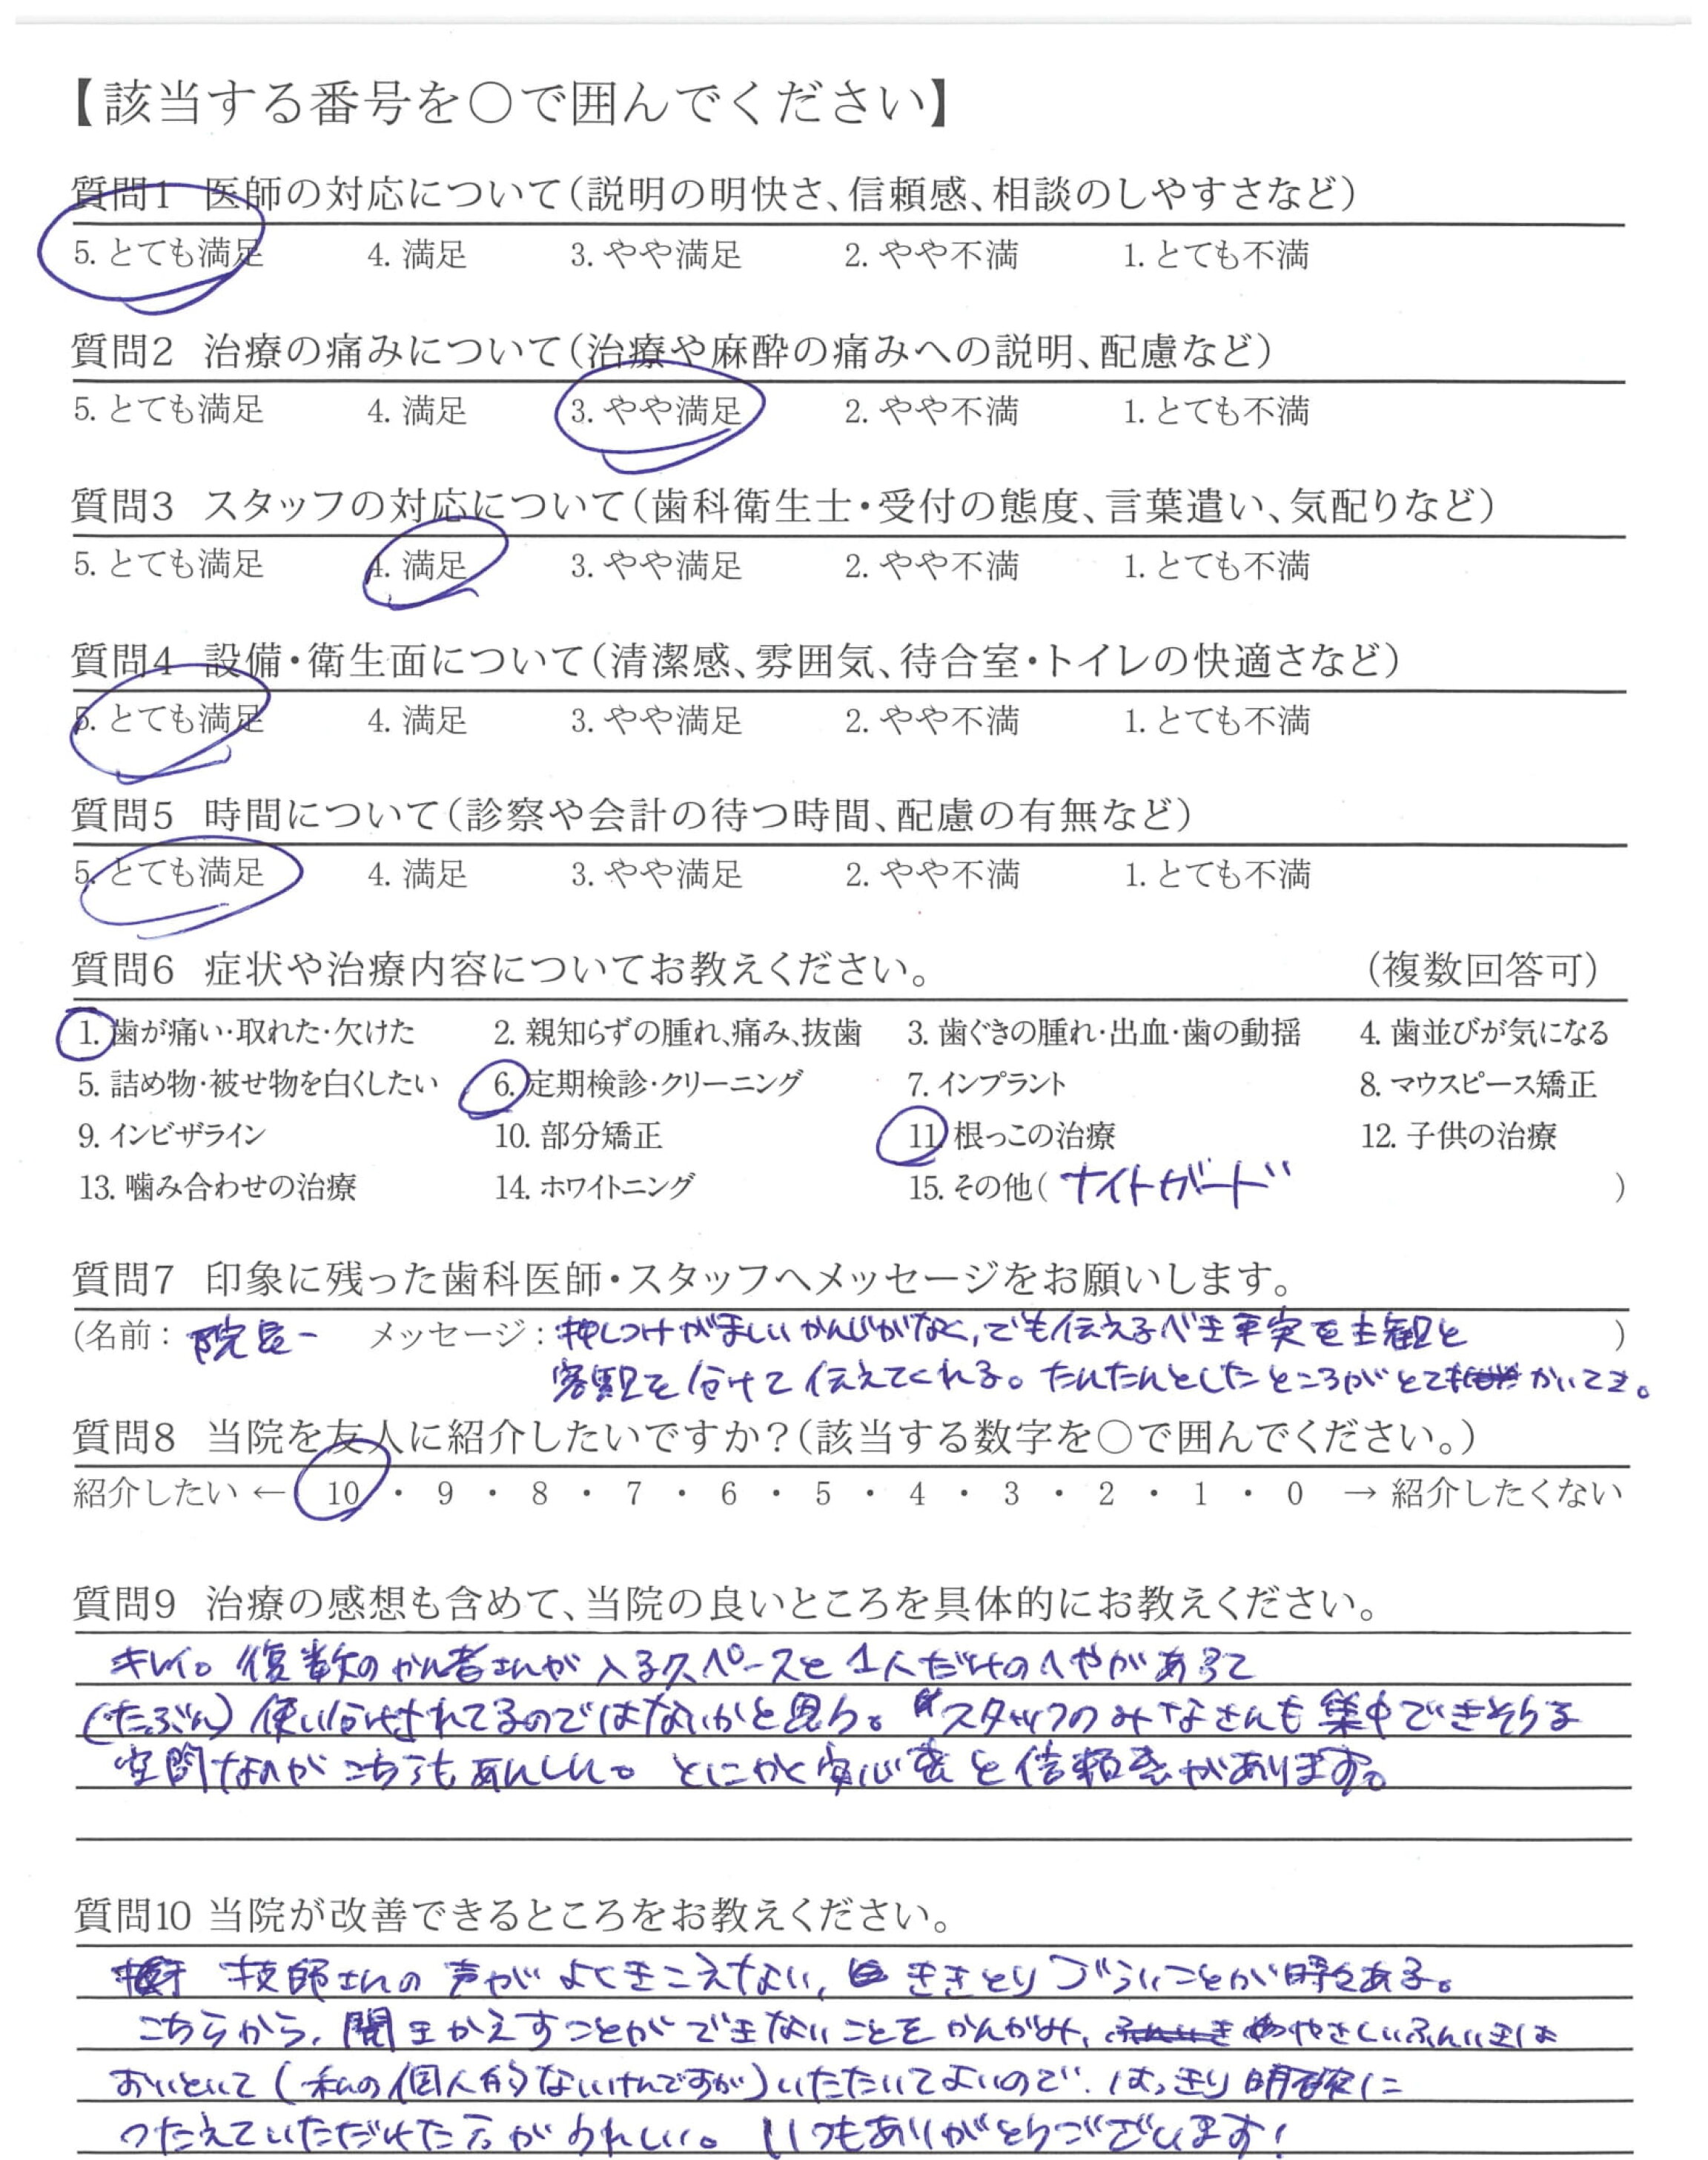 【該当する番号を○で囲んでください】
質問1 医師の対応について(説明の明快さ、信頼感、相談のしやすさなど)
5. とても満足 4. 満足 3. やや満足 2. やや不満 1. とても不満
質問2 治療の痛みについて(治療や麻酔の痛みへの説明、配慮など)
5. とても満足 4. 満足 3. やや満足 2. やや不満 1. とても不満
質問3 スタッフの対応について(歯科衛生士・受付の態度、言葉遣い、気配りなど)
5. とても満足 4. 満足 3. やや満足 2. やや不満 1. とても不満
質問4 設備・衛生面について(清潔感、雰囲気、待合室・トイレの快適さなど)
5. とても満足 4. 満足 3. やや満足 2. やや不満 1. とても不満
質問5 時間について(診察や会計の待つ時間、配慮の有無など)
5. とても満足 4. 満足 3. やや満足 2. やや不満 1. とても不満
質問6 症状や治療内容についてお教えください。 (複数回答可)
1. 歯が痛い・取れた・欠けた 2. 親知らずの腫れ、痛み、抜歯 3. 歯ぐきの腫れ・出血・歯の動揺 4. 歯並びが気になる
5. 詰め物・被せ物を白くしたい 6. 定期検診・クリーニング 7. インプラント 8. マウスピース矯正
9. インビザライン 10. 部分矯正 11. 根っこの治療 12. 子供の治療
13. 噛み合わせの治療 14. ホワイトニング 15. その他( ナイトガード )
質問7 印象に残った歯科医師・スタッフへメッセージをお願いします。
(名前: 院長 メッセージ: 押しつけがましいかんじがなく、でも伝えるべき事実を主観と )
客観を分けて伝えてくれる。たんたんとしたところがとても かいてき。
質問8 当院を友人に紹介したいですか?(該当する数字を○で囲んでください。)
紹介したい ← 10 ・ 9 ・ 8 ・ 7 ・ 6 ・ 5 ・ 4 ・ 3 ・ 2 ・ 1 ・ 0 → 紹介したくない
質問9 治療の感想も含めて、当院の良いところを具体的にお教えください。
キレイ。復数のかん者さんが入るスペースと1人だけのへやがあって
(たぶん)使い分けされてるのではないかと思う。スタッフのみなさんも集中できそうな
空間なのがこちらもあんしん。とにかく安心感と信頼感があります。
質問10 当院が改善できるところをお教えください。
技師さんの声がよくきこえない、ききとりづらいことが時々ある。
こちらから、聞きかえすことができないことをかんがみ、やさしいふんいきは
おいといて(私の個人的ないけんですが)いただいてよいので、はっきり明確に
つたえていただけた方がうれしい。いつもありがとうございます!